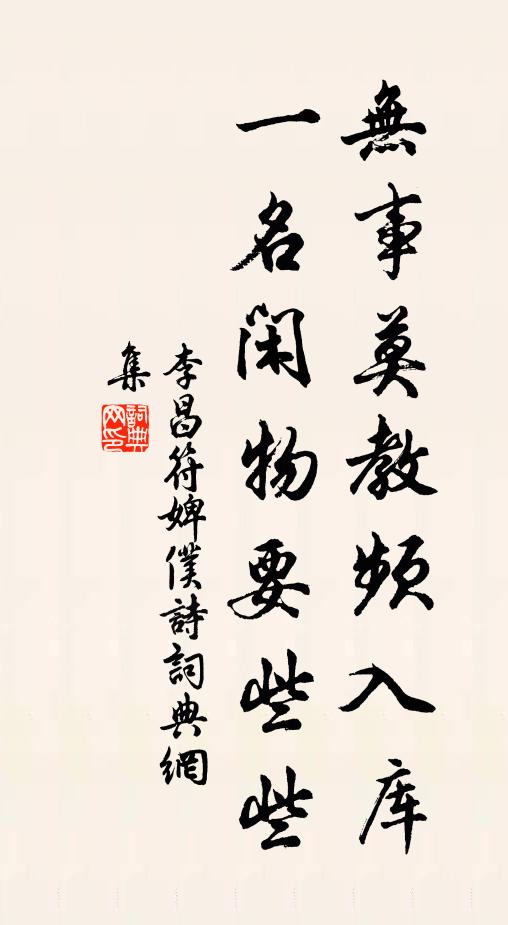 無事莫教頻入库
一名闲物要些些
李昌符婢僕詩詞典網
集
詞典網印